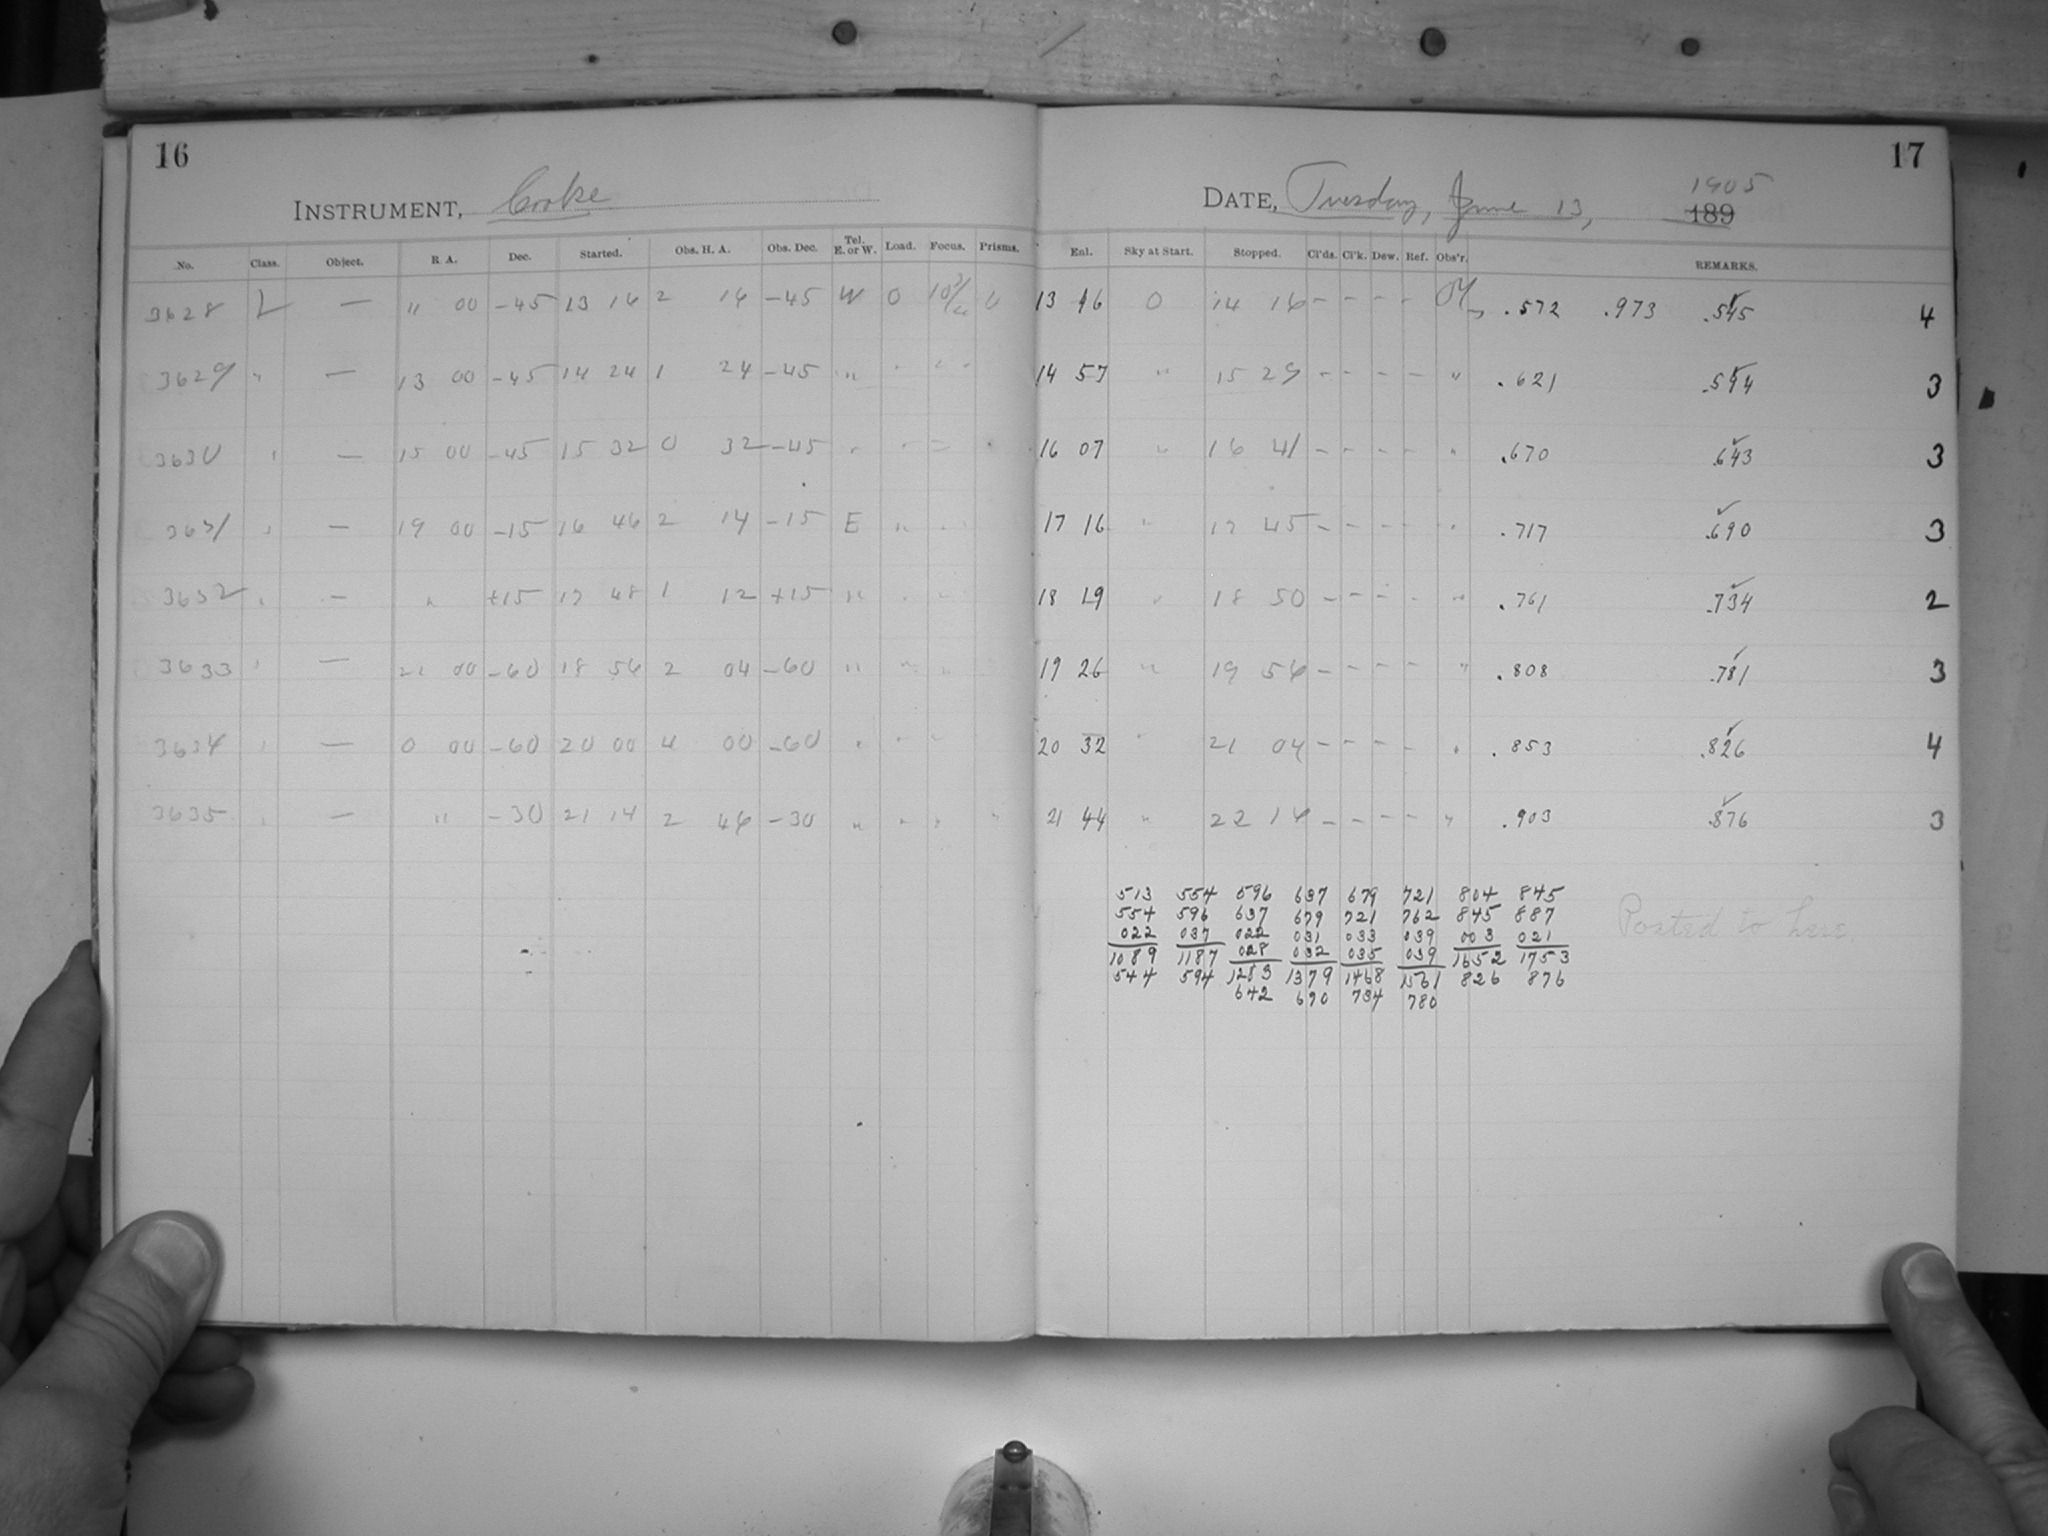 16
17
INSTRUMENT, Cooke
DATE, Tuesday, June 13, 1905 189
No. Class. Object. R. A. Dec. Started. Obs. H. A. Obs. Dec. Tel. E. or W. Load. Focus. Prisms. Enl. Sky at Start. Stopped. Cl'ds. Cl'k. Dew. Ref. Obs'r. REMARKS.
3628 L — 11 00 -45 13 16 2 16 -45 W 0 10 3/4 0 13 46 0 14 16 - - - - .572 .973 .545 4
3629 " — 13 00 -45 14 24 1 24 -45 " " " " 14 57 " 15 29 - - - - " .621 .594 3
3630 " — 15 00 -45 15 32 0 32 -45 " " " " 16 07 " 16 41 - - - - " .670 .643 3
3631 " — 19 00 -15 16 46 2 14 -15 E " " " 17 16 " 17 45 - - - - " .717 .690 3
3632 " — " +15 17 48 1 12 +15 " " " 18 19 " 18 50 - - - - " .761 .734 2
3633 " — 21 00 -60 18 56 2 04 -60 " " " 19 26 " 19 56 - - - - " .808 .781 3
3634 " — 0 00 -60 20 00 4 00 -60 " " " 20 32 " 21 04 - - - - " .853 .826 4
3635 " — " -30 21 14 2 46 -30 " " " " 21 44 " 22 14 - - - - " .903 .876 3
513 554 596 637 679 721 804 845
554 596 637 679 721 762 845 887
022 037 022 031 033 039 003 021
1089 1187 028 032 035 039 1652 1753
544 594 1283 1379 1468 1561 826 876
642 690 734 780
Posted to here